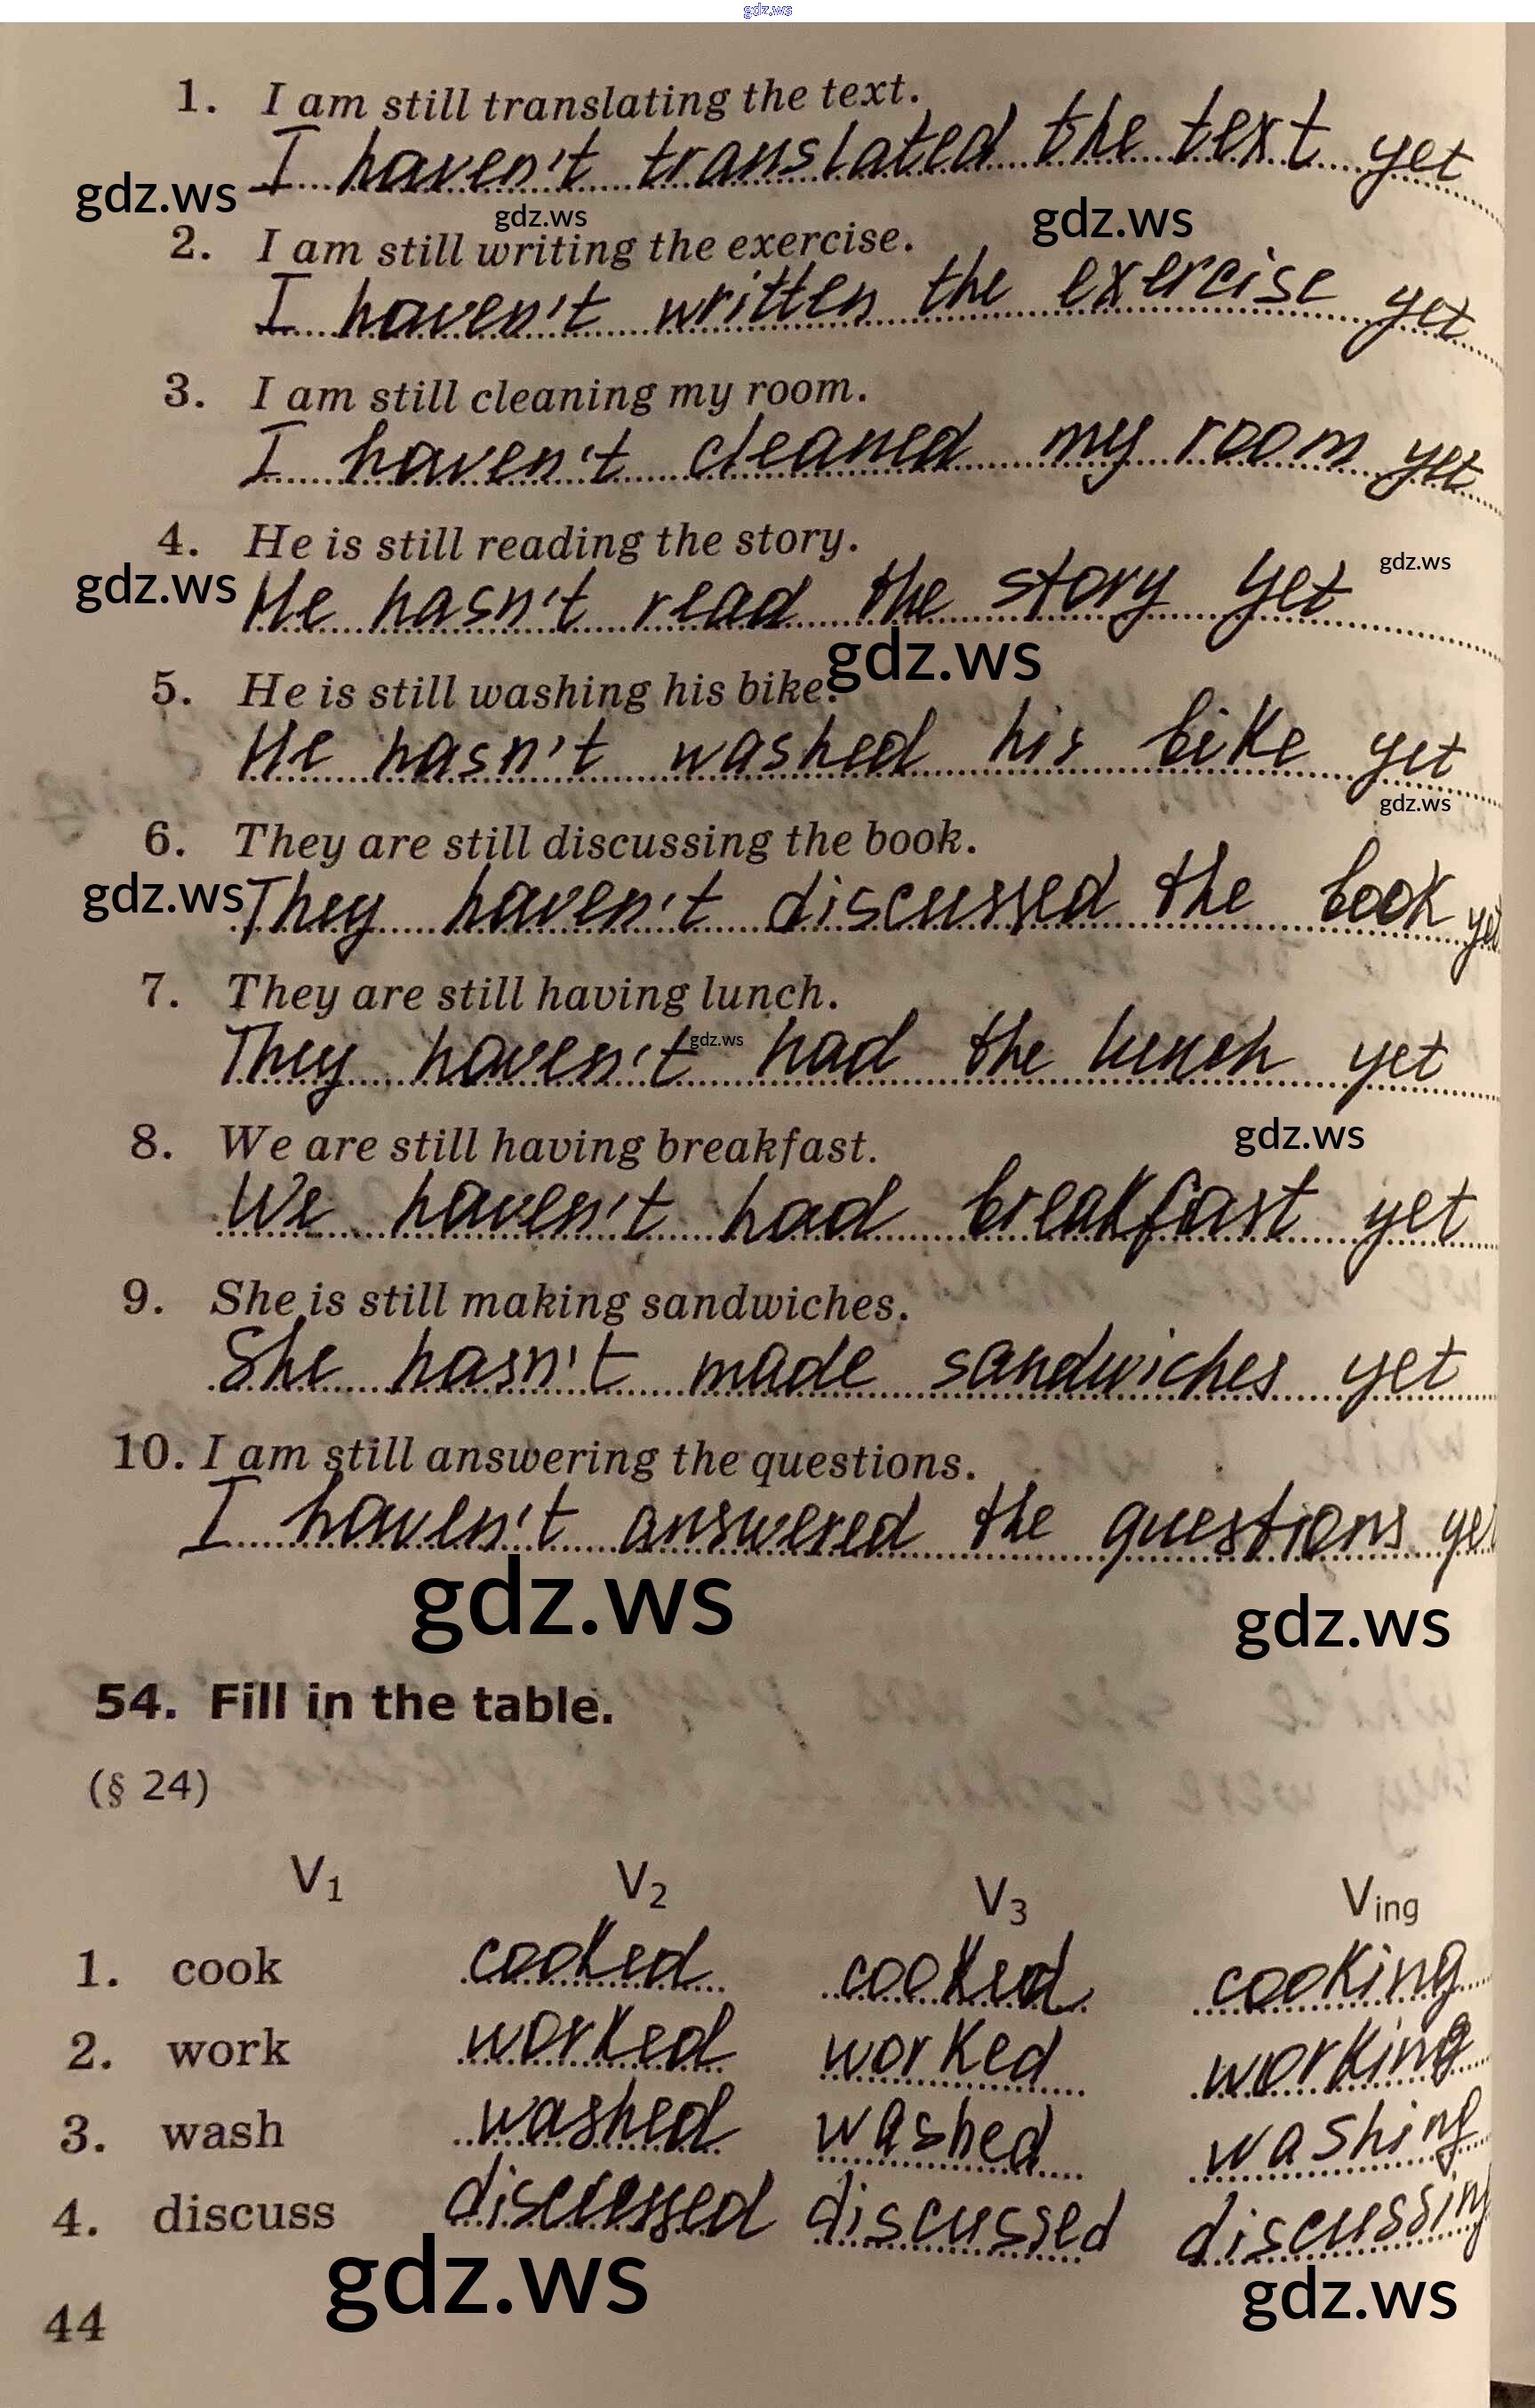 gdz.ws
1. I am still translating the text.
I haven't translated the text yet
gdz.ws
gdz.ws
gdz.ws
2. I am still writing the exercise.
I haven't written the exercise yet
3. I am still cleaning my room.
I haven't cleaned my room yet
4. He is still reading the story.
gdz.ws
gdz.ws
He hasn't read the story yet
gdz.ws
5. He is still washing his bike.
He hasn't washed his bike yet
gdz.ws
6. They are still discussing the book.
gdz.ws
They haven't discussed the book yet
7. They are still having lunch.
gdz.ws
They haven't had the lunch yet
8. We are still having breakfast.
gdz.ws
We haven't had breakfast yet
9. She is still making sandwiches.
She hasn't made sandwiches yet
10. I am still answering the questions.
I haven't answered the questions yet
gdz.ws
gdz.ws
54. Fill in the table.
(§ 24)
V1 V2 V3 Ving
1. cook cooked cooked cooking
2. work worked worked working
3. wash washed washed washing
4. discuss discussed discussed discussing
gdz.ws
gdz.ws
44